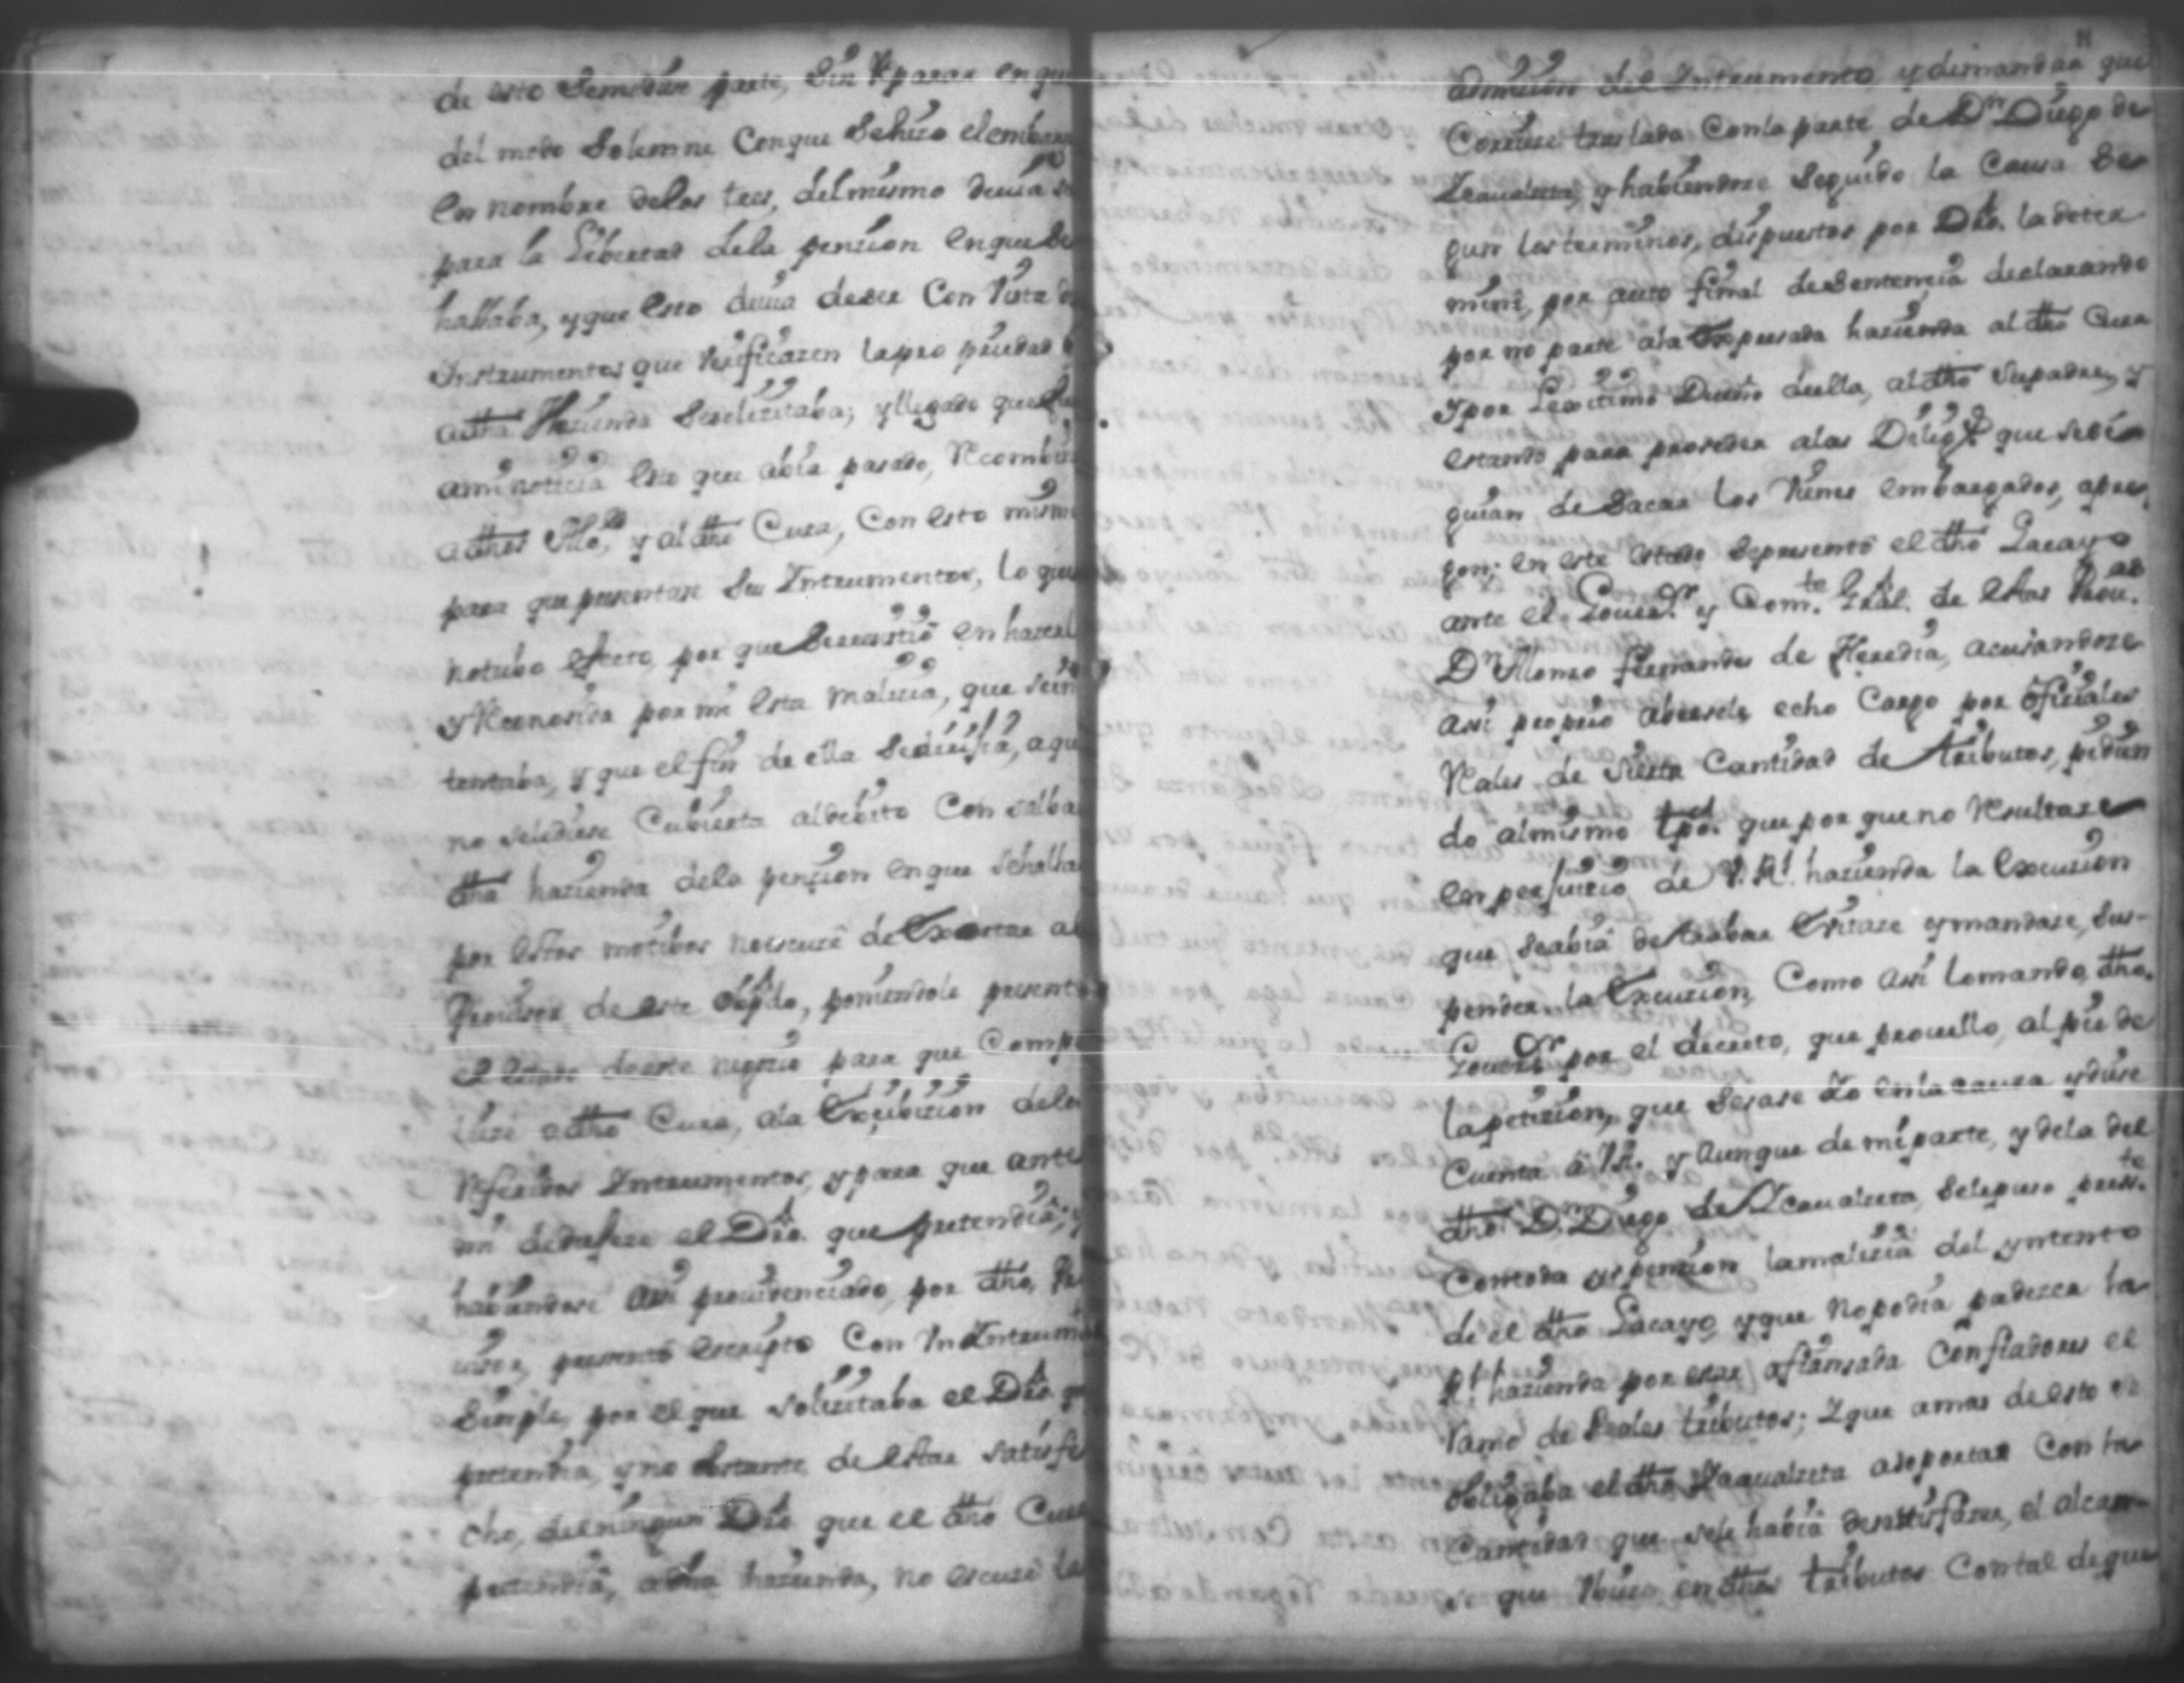 de esto Semediese parte, Sin Reparar en que
del modo Solemne Conque Sehizo elembarg
en nombre delos tres, delmismo devia se
para la Libertad dela pension enquese
hallaba, yque esto devia deser Con Vista de
Instrumentos que Verificasen lapro priedad
adha Hazienda Sesolizitaba; yllegado que
aminoticia esto que abia pasado, Recombin
adhos Mlo y al dho Cura, Con esto mism
para que presentase Sus Instrumentos, lo que
notubo efecto, por que Seresistio en hazerl
y Reconosida por mi esta malizia, que sein
tentaba, y que elfin de ella Sedirijia, aque
no selediese Cubierta aldebito Con salba
dha hazienda dela pension enque Sehalla
por estos motibos noescuse de Exortar al
Provisor de este Obpdo, poniendole presente
el estado deeste negosio para que Compe
liese adho Cura, ala Exsibizion delos
Referidos Instrumentos, y para que ante
mi dedujese el Dro. que pretendia; y
habiendose Assi providenciado, por dho, Pro
visor, presento escripto Con Un Instrumt
Simple, por elque solizitaba el Dro. que
pretendia, y no obstante de estar satisfe
cho, deningun Dro que el dho Cura
pretendia, adha hazienda, no escuse la
11
admision del Instrumento, y demandar que
Corriese traslado Conla parte de Dn Diego de
y habiendose Seguido la Causa Se
gun losterminos, dispuestos por Dro. la deter
mine, por auto final deSentencia declarando
por no parte ala Expresada hazienda al dho Cura
Ypor Lexitimo Dueño deella, aldho supadre, y
estando para proseder alas Diligs que sese
guian de Sacar los Vienes embargados, apre
gon; en este estado Sepresento el dho Lacayo
ante el Govor. y Comte. Gral. de estas Prouas.
Dn Alonso fernandes de Heredia, acusandose
assi proprio abersele echo Cargo por ofiziales
Reales de Sierta Cantidad de tributos, pidien
do almismo tpo. que por queno Resultase
en perjuizio de V. Rl. hazienda la execuzion
que seabia detrabar Evitase ymandase, Sus-
pender la Execuzion, Como assi lomando, dho.
Governor por el decreto, que proveello, al pie de
la petizion, que Sesase Yo enla causa ydiese
Cuenta a VR. y Aunque de miparte, y dela del
dho. Dn Diego de Selepuso presste
Contoda expension lamalizia del yntento
de el dho Lacayo, y que nopodia padezer la
Rl. hazienda por estar afiansada Confiadores el
ramo de Reales tributos; Y que amas deesto se
obligaba el dho asoportar Con la
Cantidad que sele habia desatisfazer, el alcan-
se que Vbiese endhos tributos Contal deque